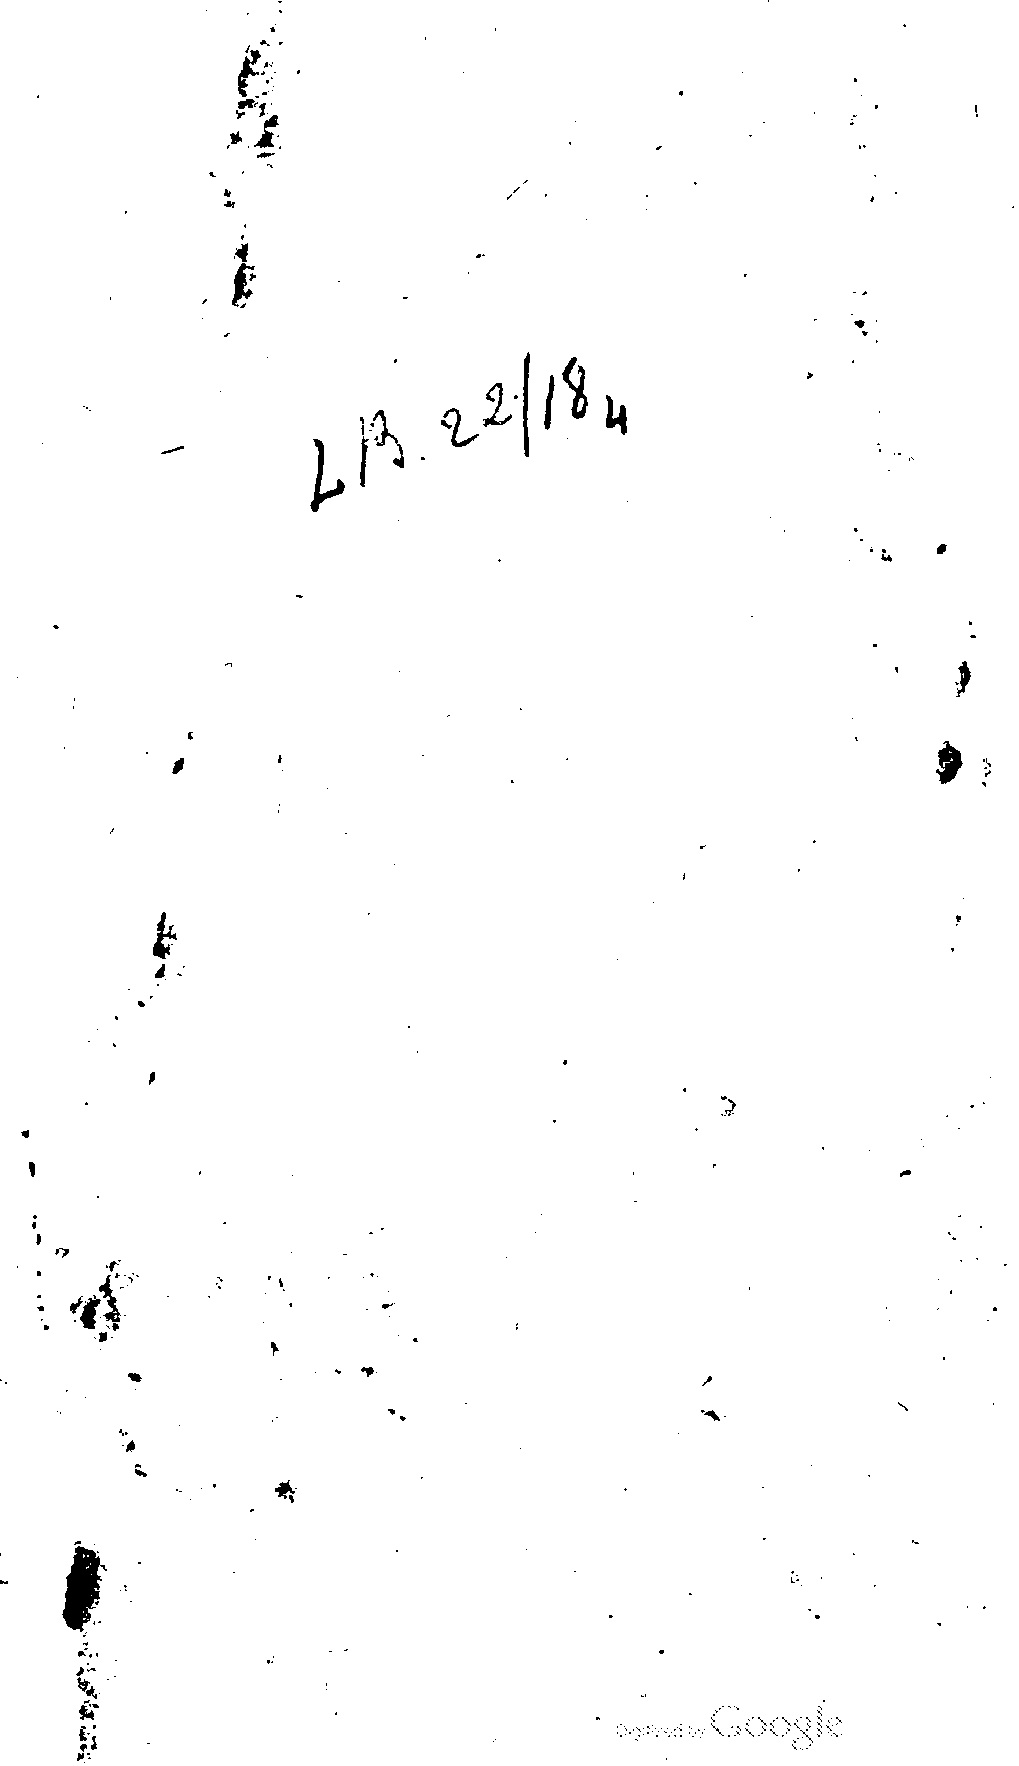 LB. 22/184
Digitized by Google